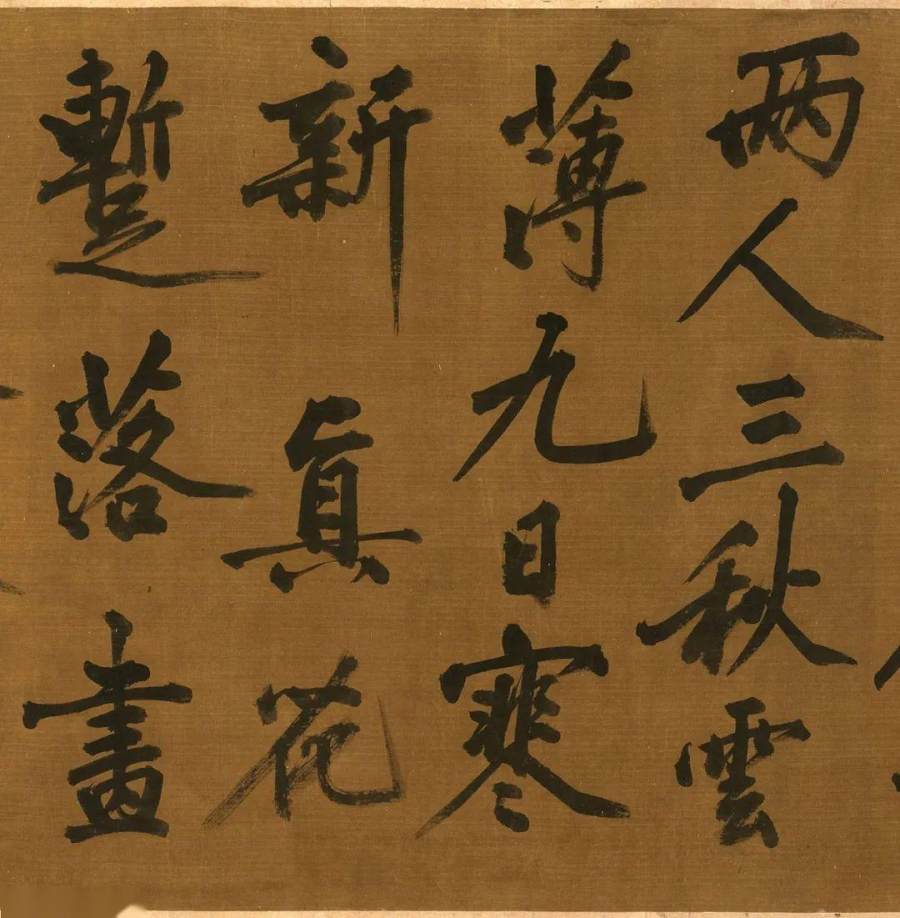 两人三秋雲
薄九日寒
新真花
暫落畫